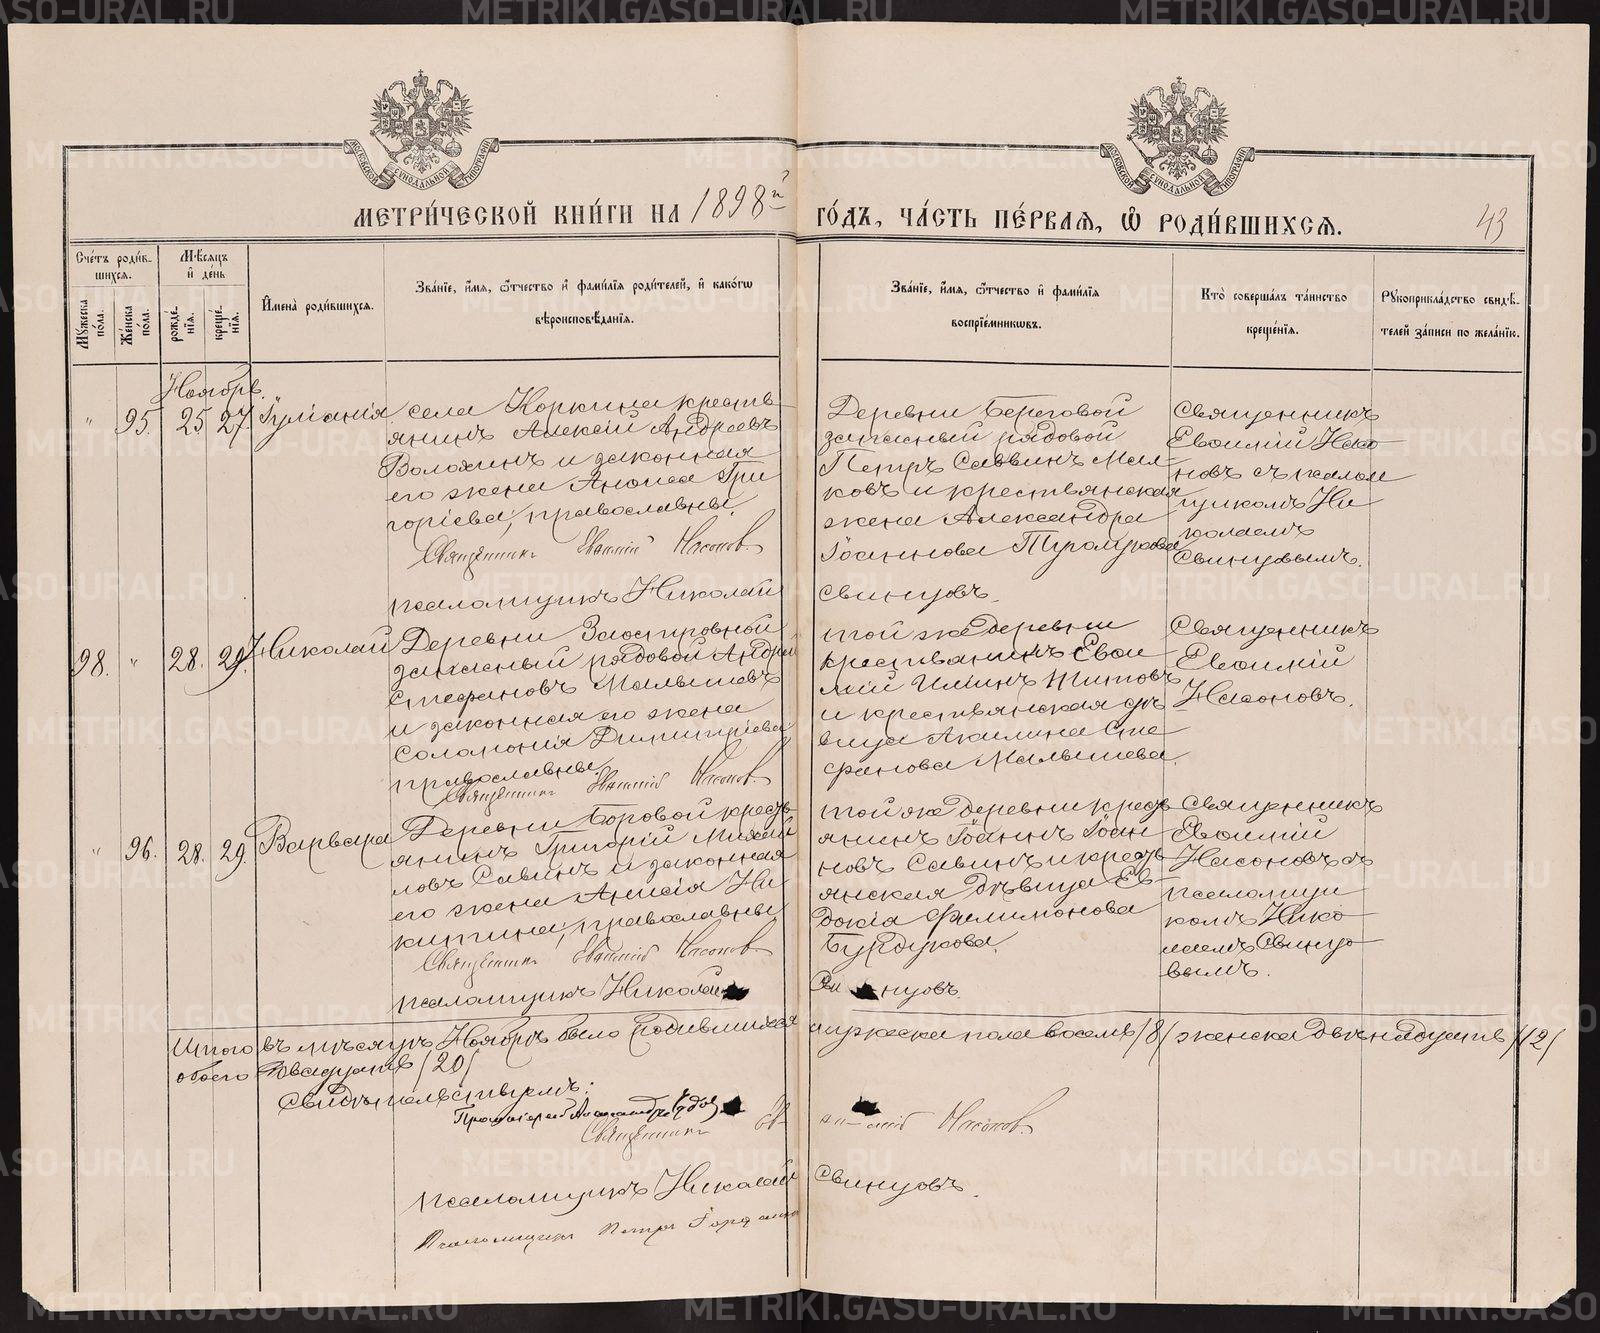 МЕТРИ́ЧЕСКОЙ КНИ́ГИ НА 1898й ГО́ДЪ, ЧА́СТЬ ПЕ́РВАЯ, Ѡ РОДИ́ВШИХСЯ.
43
Сче́тъ роди́в-
шихся.
Му́жеска по́ла.
Же́нска по́ла.
Мѣ́сяцъ
и де́нь
рожде́-
нія.
креще́-
нія.
Имена̀ роди́вшихся.
Зва́ніе, и́мя, ѻ́тчество и фами́лія роди́телей, и како́гѡ
вѣроисповѣ́данія.
Зва́ніе, и́мя, ѻ́тчество и фами́лія
воспріе́мникѡвъ.
Кто̀ соверша́лъ та́инство
креще́нія.
Рукоприкла́дство свидѣ́-
телей за́писи по жела́нію.
Ноябрь.
" 95. 25 27 Іуліанія
села Коркина кресть
янинъ Алексій Андреевъ
Волохинъ и законная
его жена Анфиса Гри
горіева, православны.
Священникъ Евфимій Насонов.
псаломщикъ Николай
Деревни Береговой
запасный рядовой
Петръ Саввинъ Мал-
ковъ и крестьянская
жена Александра
Іоаннова
Свинцовъ.
Священникъ
Евфимій Насо
новъ съ псалом
щикомъ Ни
колаемъ
Свинцовымъ.
98. " 28. 29. Николай
Деревни Заостровной
запасный рядовой Андрей
Стефановъ Малышевъ
и законная его жена
Соломонія Димитріева
православны.
Священникъ Евфимій Насонов.
той же деревни
крестьянинъ Евфи
мій Иліинъ Титовъ
и крестьянская дѣ
вица Акилина Сте
фанова Малышева.
Священникъ
Евфимій
Насоновъ.
" 96. 28. 29. Варвара
Деревни Боровой кресть
янинъ Григорій Михай
ловъ Савинъ и законная
его жена Анисія Ни
китина, православны
Священникъ Евфимій Насонов.
псаломщикъ Николай
той же деревни кресть
янинъ Іоаннъ Іоан
новъ Савинъ и кресть
янская дѣвица Ев-
докія Филимонова
Бурдукова.
Свинцовъ.
Священникъ
Евфимій
Насоновъ съ
псаломщи
комъ Нико
лаемъ Свинцо
вымъ.
Итого въ мѣсяцѣ Ноябрѣ было родившихся мужеска пола восемь /8/ женска двѣнадцать /12/
обоего двадцать /20/
Свидѣтельствуемъ:
Протоіерей Александръ
Священникъ Евфимій Насонов.
псаломщикъ Николай Свинцовъ.
Псаломщикъ Петръ
METRIKI.GASO-URAL.RU